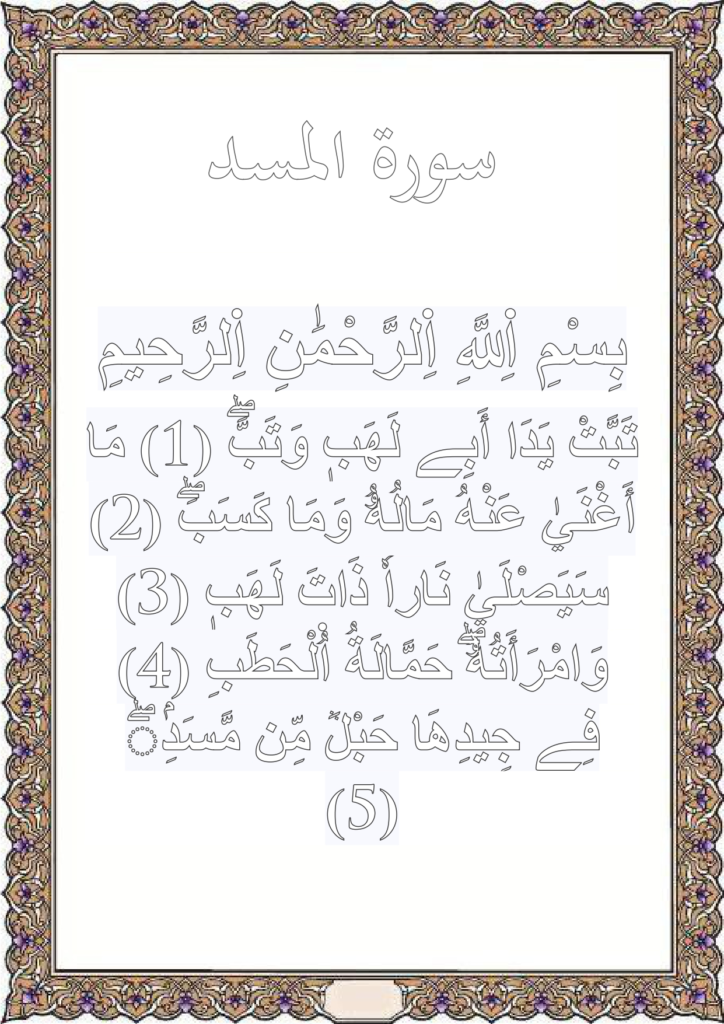 سورة المسد
بِسْمِ اِ۬للَّهِ اِ۬لرَّحْمَٰنِ اِ۬لرَّحِيمِ
تَبَّتْ يَدَا أَبِے لَهَبٖ وَتَبَّۖ (1) مَا
أَغْنَيٰ عَنْهُ مَالُهُۥ وَمَا كَسَبَۖ (2)
سَيَصْلَيٰ نَاراٗ ذَاتَ لَهَبٖ (3)
وَامْرَأَتُهُۥۖ حَمَّالَةُ اُ۬لْحَطَبِ (4)
فِے جِيدِهَا حَبْلٞ مِّن مَّسَدِۢۖ
(5)